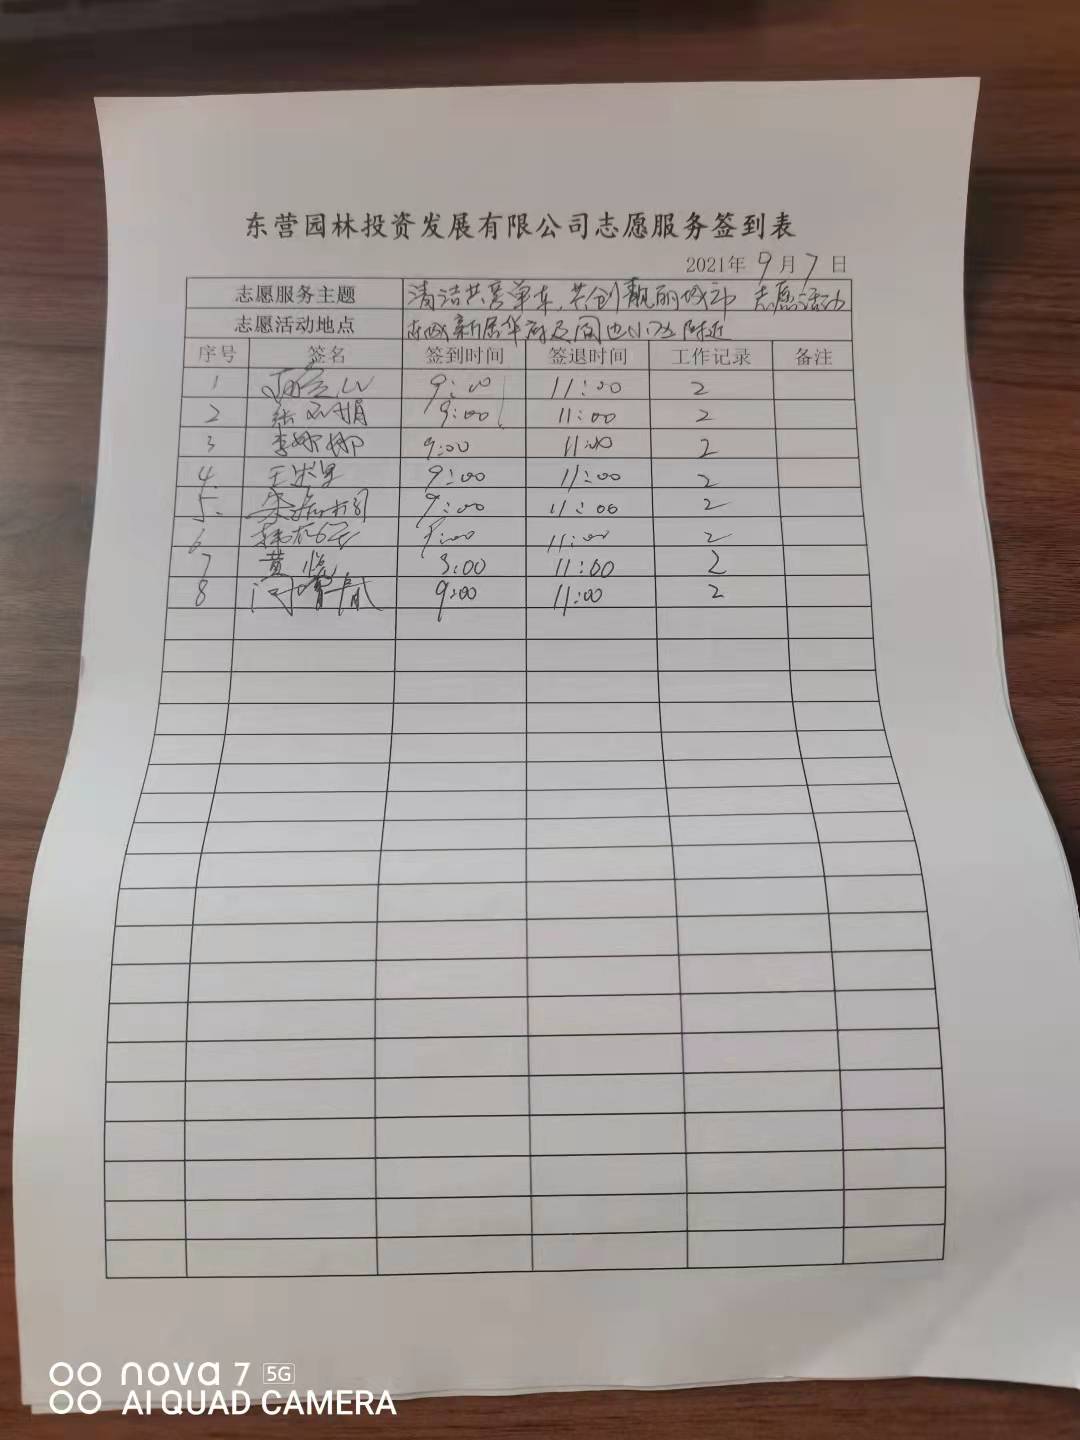 东营园林投资发展有限公司志愿服务签到表
2021年 9月 7日
志愿服务主题 清洁共享单车,共创靓丽城市 志愿活动
志愿活动地点 东城新居华府及周边小区附近
序号 签名 签到时间 签退时间 工作记录 备注
1 9:00 11:00 2
2 9:00 11:00 2
3 李娜娜 9:00 11:00 2
4. 9:00 11:00 2
5. 9:00 11:00 2
6 9:00 11:00 2
7 黄悦 9:00 11:00 2
8 9:00 11:00 2
nova 7 5G
AI QUAD CAMERA